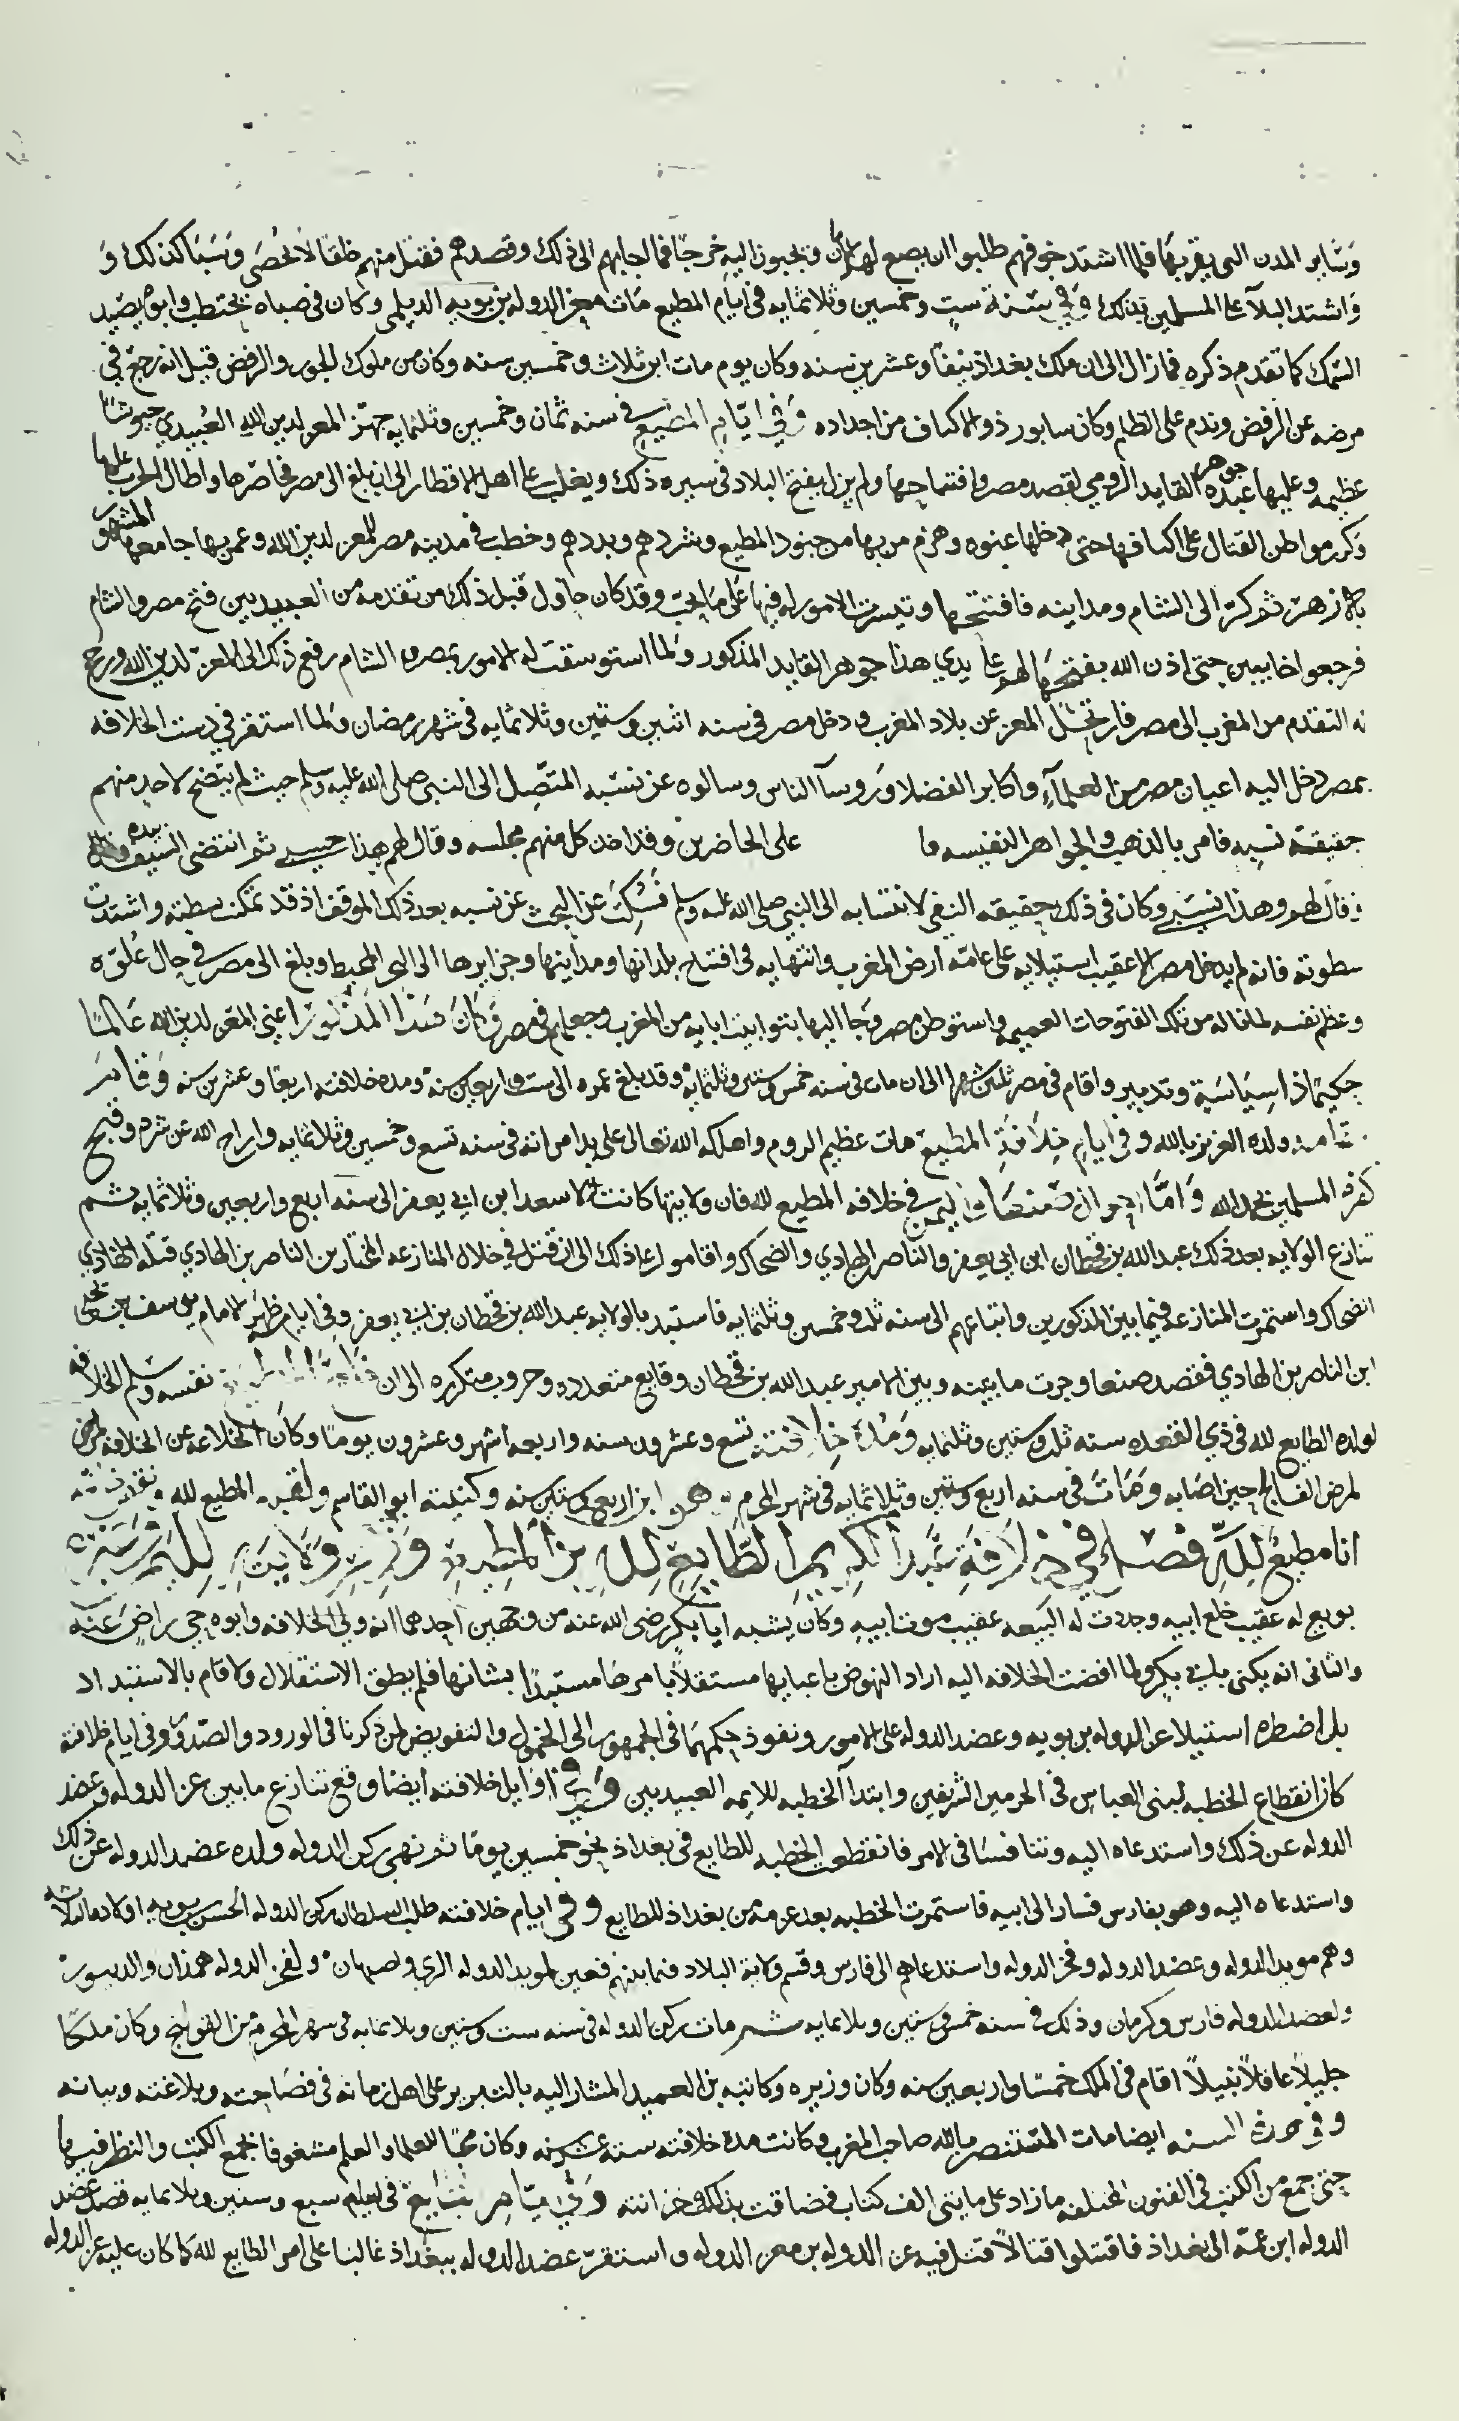 وساير المدن التي بقربها فلما اشتد خوفهم طلبوا ان يضع لهم الامان ويجبون اليه خرجا فما اجابهم الى ذلك وقصدهم فقتل منهم خلقا لا تحصى وسبا كذلك و
واشتد البلآ على المسلمين بذلك وفي سنة ست وخمسين وثلاثمايه في ايام المطيع مات معز الدوله بن بويه الديلمي وكان في صباه يحتطب وابوه يصيد
السمك كما تقدم ذكره فما زال الى ان ملك بغداد نيفا وعشرين سنه وكان يوم مات ابن ثلاث وخمسين سنه وكان من ملوك الجور والرفض قيل انه رجع في
مرضه عن الرفض وندم على الظلم وكان سابور ذو الاكتاف من اجداده وفي ايام المطيع في سنه ثمان وخمسين وثلثمايه جهز المعز لدين الله العبيدي جيوشا
عظيمه وعليها عبده جوهر القايد الرومي لقصد مصر وافتتاحها ولم يزل يفتح البلاد في سيره ذلك ويغلب على اهل الاقطار الى ان بلغ الى مصر فحاصرها واطال الحرب عليها
وكرر مواطن القتال على اكنافها حتى دخلها عنوه وهزم من بها من جنود المطيع وشردهم وبددهم وخطب في مدينه مصر للمعز لدين الله وعمر بها جامعها المشهور
بالازهر ثم كر الى الشام ومداينه فافتتحها وتيسرت الامور له فيها على ما يحب وقد كان حاول قبل ذلك من تقدمه من العبيديين فتح مصر والشام
فرجعوا خايبين حتى اذن الله بفتحها لهم على يدي هذا جوهر القايد المذكور ولما استوسقت له الامور بمصر والشام رفع ذلك الى المعز لدين الله ورجح
له التقدم من المغرب الى مصر فارتحل المعز عن بلاد المغرب ودخل مصر في سنه اثنين وستين وثلاثمايه في شهر رمضان ولما استقر في دست الخلافه
بمصر دخل اليه اعيان مصر من العلمآء واكابر الفضلا ورؤسآ الناس وسالوه عن نسبه المتصل الى النبي صلى الله عليه وسلم حيث لم يتضح لاحد منهم
حقيقة نسبه فامر بالذهب والجواهر النفيسه على الحاضرين وقد اخذ كل منهم مجلسه وقال لهم هذا حسبي ثم انتضى السيف بيده
وقال لهم وهذا نسبي وكان في ذلك حقيقه النفي لانتسابه الى النبي صلى الله عليه وسلم فسكت عن البحث عن نسبه بعد ذلك الموقف اذ قد تمكنت بسطته واشتدت
سطوته فانه لم يدخل مصر الا عقيب استيلايه على عامة ارض المغرب وانتهايه في افتتاح بلدانها ومداينها وجزايرها الى البحر المحيط وبلغ الى مصر في حال علوه
وعظم نفسه لما ناله من تلك الفتوحات العميمه واستوطن مصر وجا اليها بتوابيت ابايه من المغرب وجعلهم في مصر وكان هذا المذكور اعني المعز لدين الله عالما
حكيما ذا سياسية وتدبير واقام في مصر ثلثين شهرا الى ان مات في سنه خمس وستين وثلثمايه وقد بلغ عمره الى ست واربعين سنه ومده خلافته اربعا وعشرين سنه وقام
مقامه ولده العزيز بالله وفي ايام خلافة المطيع مات عظيم الروم واهلكه الله تعالى على يد امراته في سنه تسع وخمسين وثلاثمايه واراح الله عن شره وقبح
كفره المسلمين بحمد الله واما احوال صنعا واليمن في خلافه المطيع لله فان ولايتها كانت لاسعد ابن ابي يعفر الى سنه اربع واربعين وثلاثمايه ثم
تنازع الولايه بعد ذلك عبد الله بن قحطان ابن ابي يعفر والناصر الهادي والضحاك واقاموا على ذلك الى ان قتل في خلال المنازعه المختار بن الناصر بن الهادي قتله الهادي
الضحاك واستمرت المنازعه فيما بين المذكورين واتباعهم الى سنه ثلث وخمسين وثلثمايه فاستبد بالولايه عبد الله بن قحطان بن ابي يعفر وفي ايام ظهر الامام يوسف بن يحيى
ابن الناصر بن الهادي فقصد صنعا وجرت ما بينه وبين الامير عبد الله بن قحطان وقايع متعدده وحروب متكرره الى ان خلع المطيع نفسه وسلم الخلافه
لولده الطايع لله في ذي القعده سنه ثلث وستين وثلثمايه ومدة خلافته تسع وعشرون سنه واربعه اشهر وعشرون يوما وكان انخلاعه عن الخلافه
لمرض الفالج حين اصابه ومات في سنه اربع وستين وثلاثمايه في شهر المحرم وهو ابن اربع وستين سنه وكنيته ابو القاسم ولقبه المطيع لله ونقش خاتمه
انا مطيع لله فصل في خلافة عبد الكريم الطايع لله بن المطيع
بويع له عقيب خلع ابيه وجددت له البيعه عقيب موت ابيه وكان يشبه ابا بكر رضي الله عنه من وجهين احدهما انه ولي الخلافه وابوه حي راض عنه
والثاني انه يكنى بابي بكر ولما افضت الخلافه اليه اراد النهوض باعبايها مستقلا بامرها مستبدا بشانها فلم يطق الاستقلال ولا قام بالاستبداد
بل اضطره استيلا عز الدوله بن بويه وعضد الدوله على الامور ونفوذ حكمهما في الجمهور الى الخمول والتفويض لمن ذكرنا في الورود والصدور وفي ايام خلافته
كان انقطاع الخطبه لبني العباس في الحرمين الشريفين وابتدآ الخطبه للايمه العبيديين وفي اوايل خلافته ايضا وقع تنازع ما بين عز الدوله وعضد
الدوله عن ذلك واستدعاه اليه وتنافسا في الامر فانقطعت الخطبه للطايع في بغداد نحو خمسين يوما ثم نهى ركن الدوله ولده عضد الدوله عن ذلك
واستدعاه اليه وهو بفارس فسار الى ابيه فاستمرت الخطبه بعد عزمه من بغداد للطايع وفي ايام خلافته طلب السلطان ركن الدوله الحسن بن بويه اولاده الثلاثه
وهم مويد الدوله وعضد الدوله وفخر الدوله واستدعاهم الى فارس وقسم ولاية البلاد فيما بينهم فعين لمويد الدوله الري واصبهان ولفخر الدوله همذان والدينور
ولعضد الدوله فارس وكرمان وذلك في سنه خمس وستين وثلاثمايه ثم مات ركن الدوله في سنه ست وستين وثلاثمايه في شهر المحرم من القولنج وكان ملكا
جليلا عاقلا نبيلا اقام في الملك خمسا واربعين سنه وكان وزيره وكاتبه بن العميد المشار اليه بالتبريز على اهل زمانه في فصاحته وبلاغته وبيانه
وفي هذه السنه ايضا مات المستنصر بالله صاحب المغرب وكانت مدة خلافته ستة عشر سنه وكان محبا للعلما والعلم مشغوفا بجمع الكتب والنظر فيها
حتى جمع من الكتب في الفنون المختلفه ما زاد على مايتي الف كتاب فضاقت بذلك خزانته وفي سبع وستين وثلاثمايه قصد عضد
الدوله ابن عمه الى بغداد فاقتتلوا قتالا قتل فيه عز الدوله بن معز الدوله واستقر عضد الدوله ببغداد غالبا على امر الطايع لله كما كان عليه عز الدوله